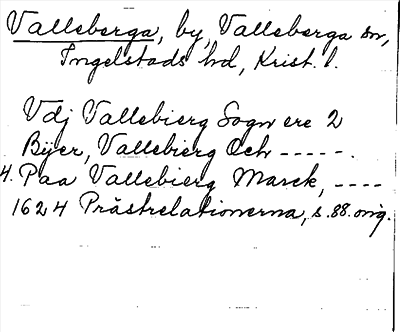 Valleberga, by, Valleberga sn,
Ingelstads hd, Krist. l.
Vdj Vallebierg Sogn ere 2
Bÿer, Vallebierg Och -----.
4. Paa Vallebierg Marck, ----
1624 Prästrelationerna, s. 88. orig.